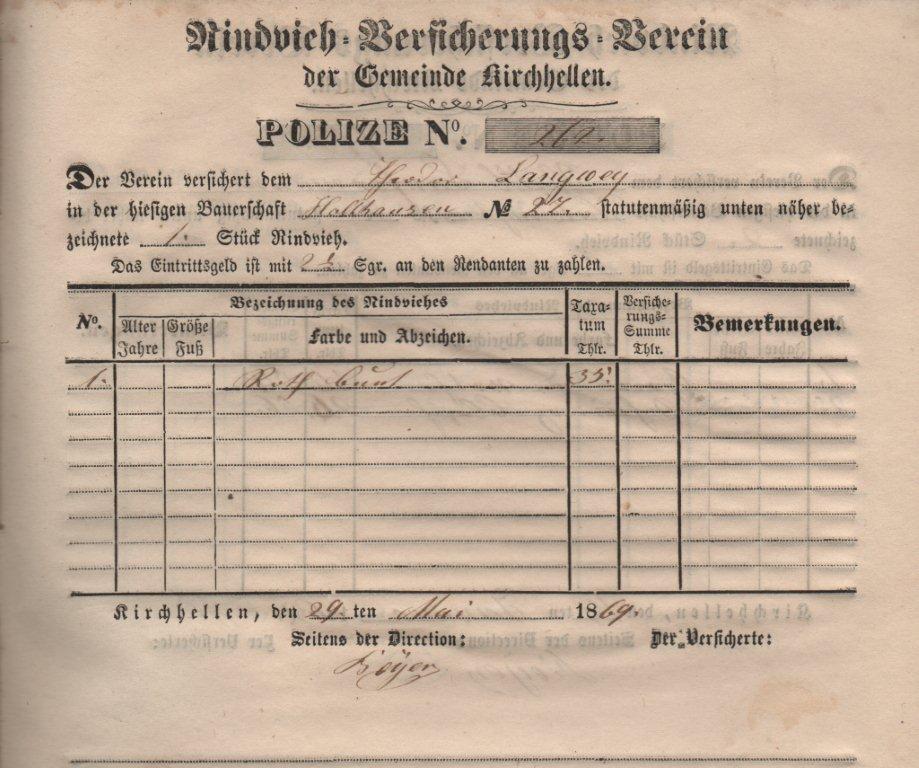 Rindvieh-Versicherungs-Verein
der Gemeinde Kirchhellen.
POLIZE No. 262.
Der Verein versichert dem Theodor Langwey
in der hiesigen Bauerschaft Holthausen No 27. statutenmäßig unten näher be-
zeichnete 1. Stück Rindvieh.
Das Eintrittsgeld ist mit 2½ Sgr. an den Rendanten zu zahlen.
No. Bezeichnung des Rindviehes Taxa-tum Thlr. Versiche-rungs-Summe Thlr. Bemerkungen.
Alter Jahre Größe Fuß Farbe und Abzeichen.
1. Roth bunt 35
Kirchhellen, den 29 ten Mai 1869.
Seitens der Direction: Der Versicherte: